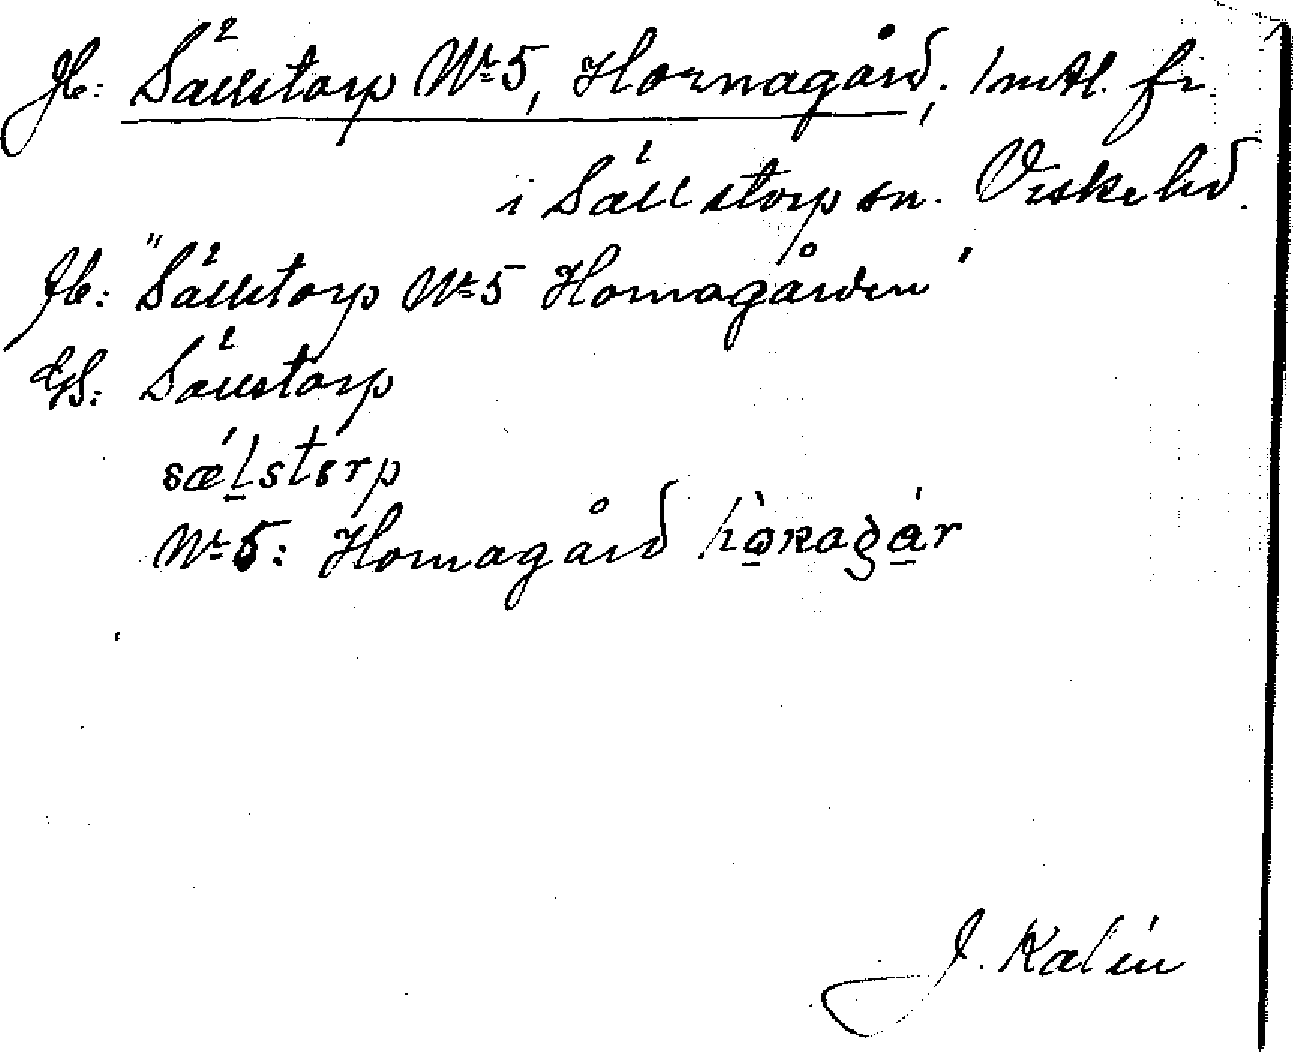 Jb: Sällstorp Nr 5, Hornagård; 1 mtl. fr.
i Sällstorp sn. Viske hd.
Jb: "Sällstorp Nr 5 Hornagården"
GS: Sällstorp
sæ̀lstɞrp
Nr 5: Hornagård
J. Kalén